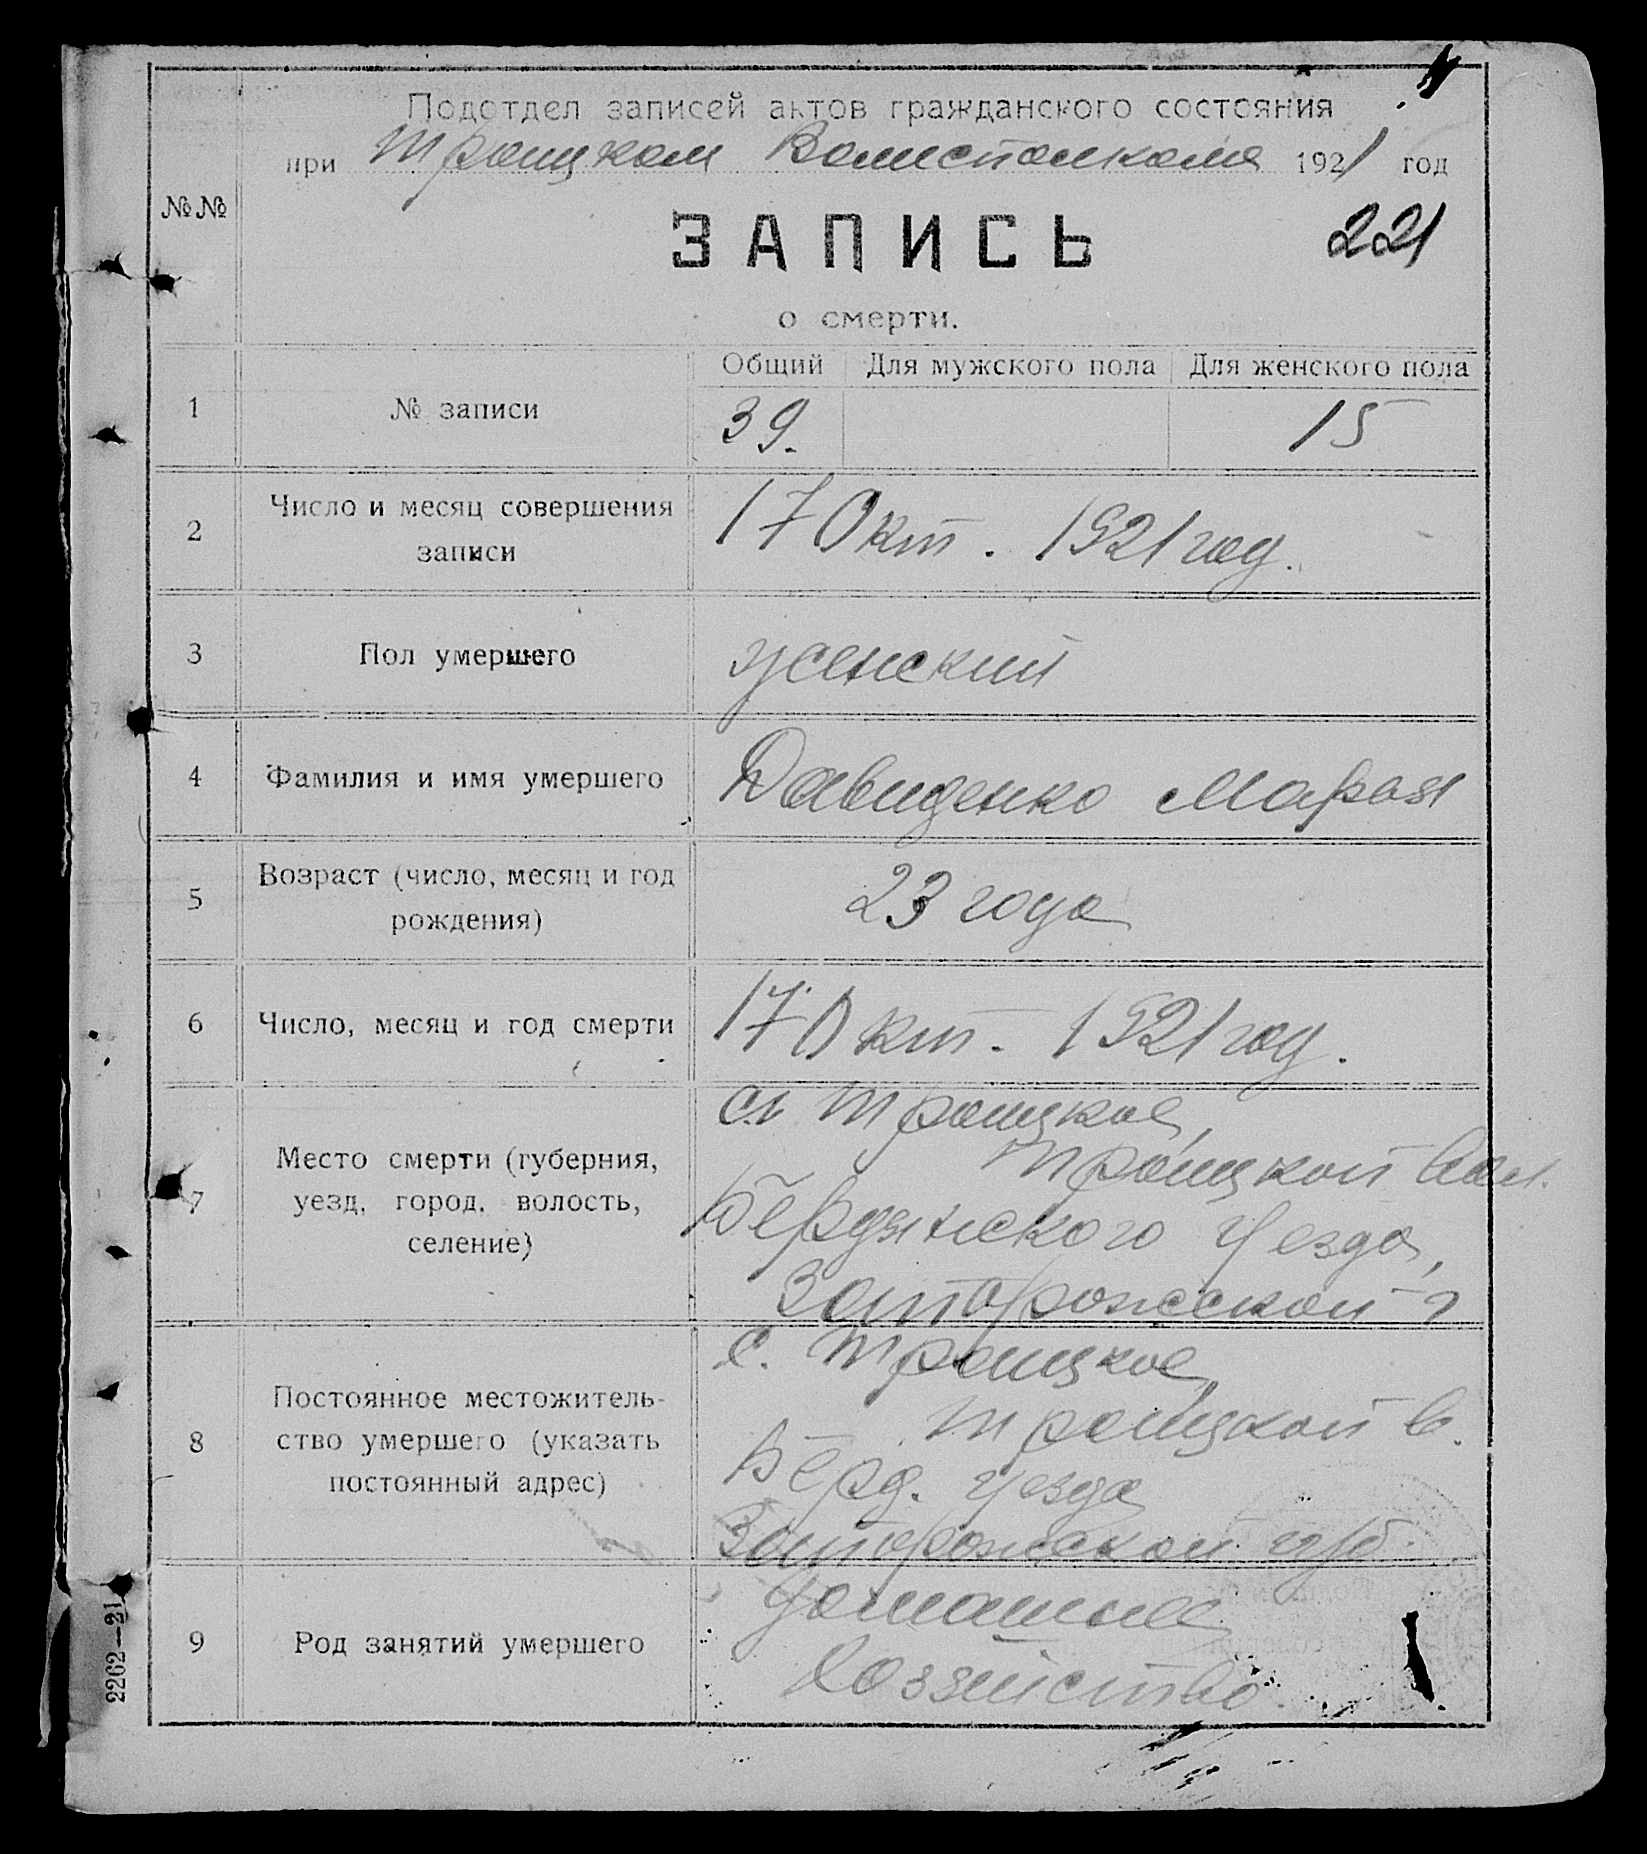 Подотдел записей актов гражданского состояния
при Троицком Волисполкоме 1921 год
№№
ЗАПИСЬ
221
о смерти.
Общий Для мужского пола Для женского пола
1 № записи 39. 15
2 Число и месяц совершения
записи
17 Окт. 1921 год.
3 Пол умершего женский
4 Фамилия и имя умершего Давиденко Мария
5 Возраст (число, месяц и год
рождения)
23 года
6 Число, месяц и год смерти 17 Окт. 1921 год.
7 Место смерти (губерния,
уезд, город, волость,
селение)
с. Троицкое,
Троицкой Вол.
Бердянского Уезда,
Запорожской г
8 Постоянное местожитель-
ство умершего (указать
постоянный адрес)
с. Троицкое,
Троицкой в.
Берд. уезда
Запорожской губ.
9 Род занятий умершего
домашнее
Хозяйство.
2262—21